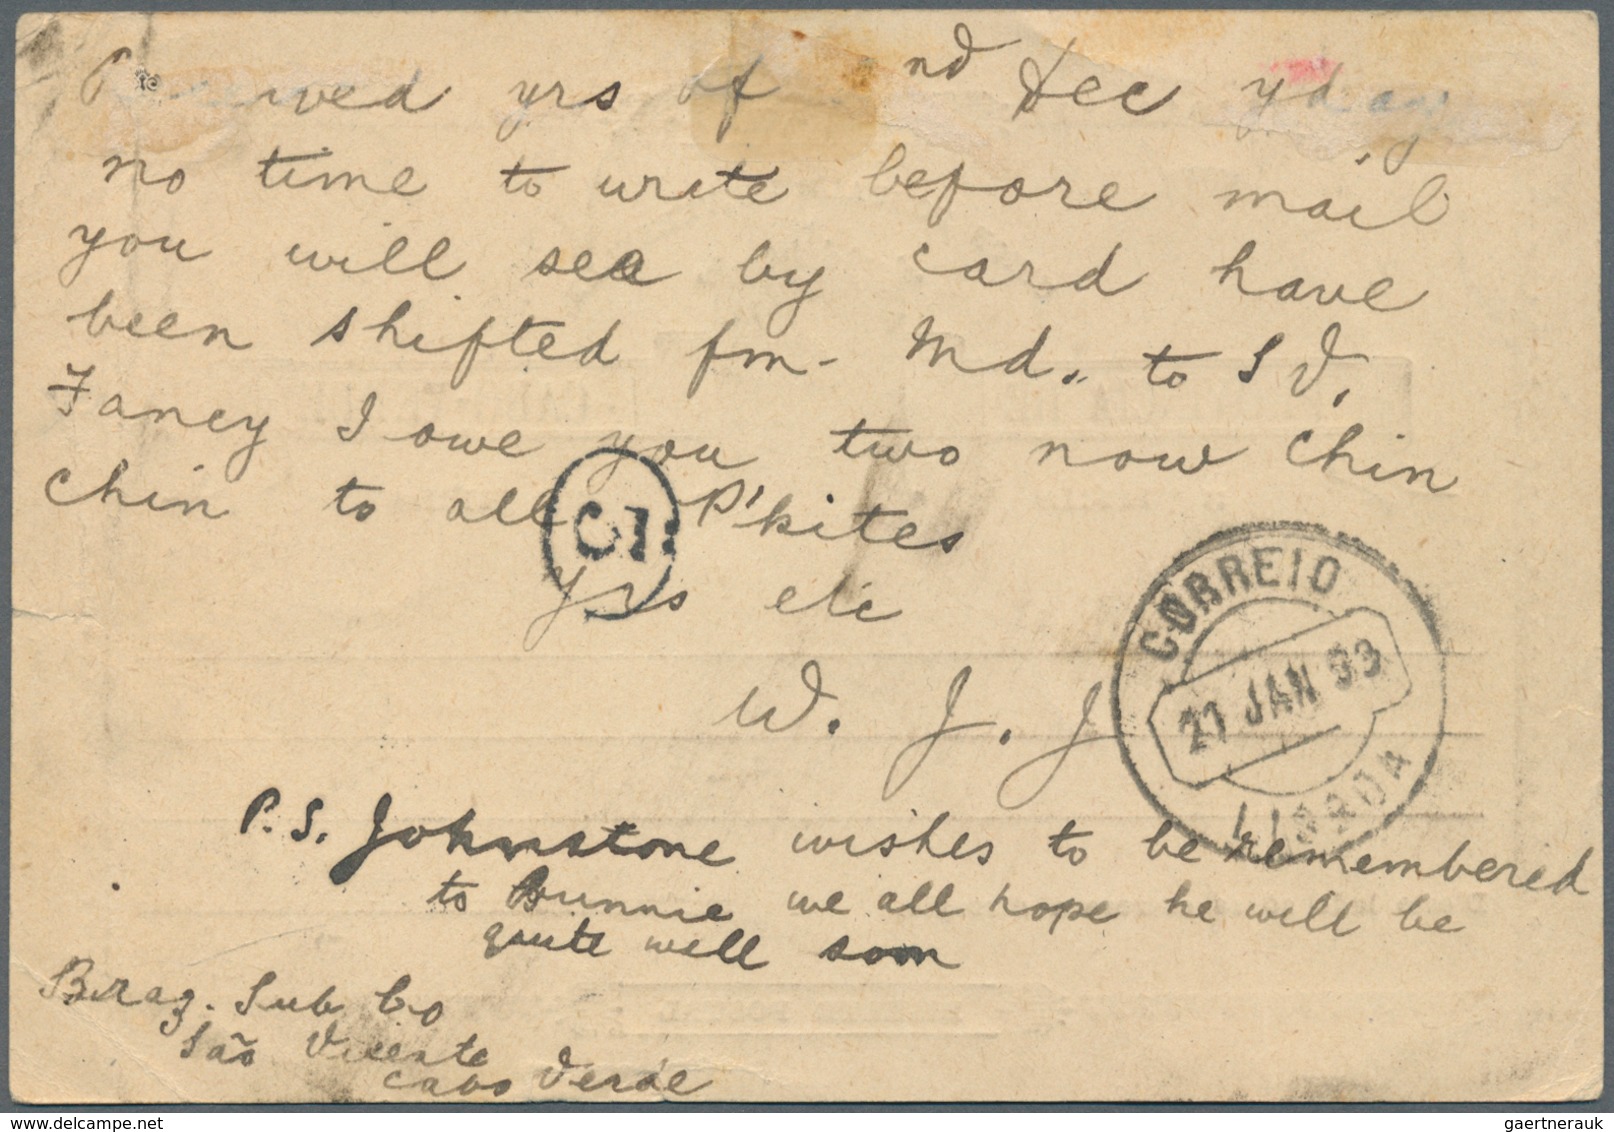 yrs of nd Dec
no time to write before mail
you will see by card have
been shifted fm- Md.. to S V.
Fancy I owe you two now chin
chin to all P'kites
C.7.
yrs etc
W. J. J
CORREIO
27 JAN 93
LISBOA
P.S. Johnstone wishes to be remembered
to Bunnie we all hope he will be
quite well soon
Braz. Sub Co
São Vicente
Cabo Verde
gaertnerauk @ ansichtskartenversand.com